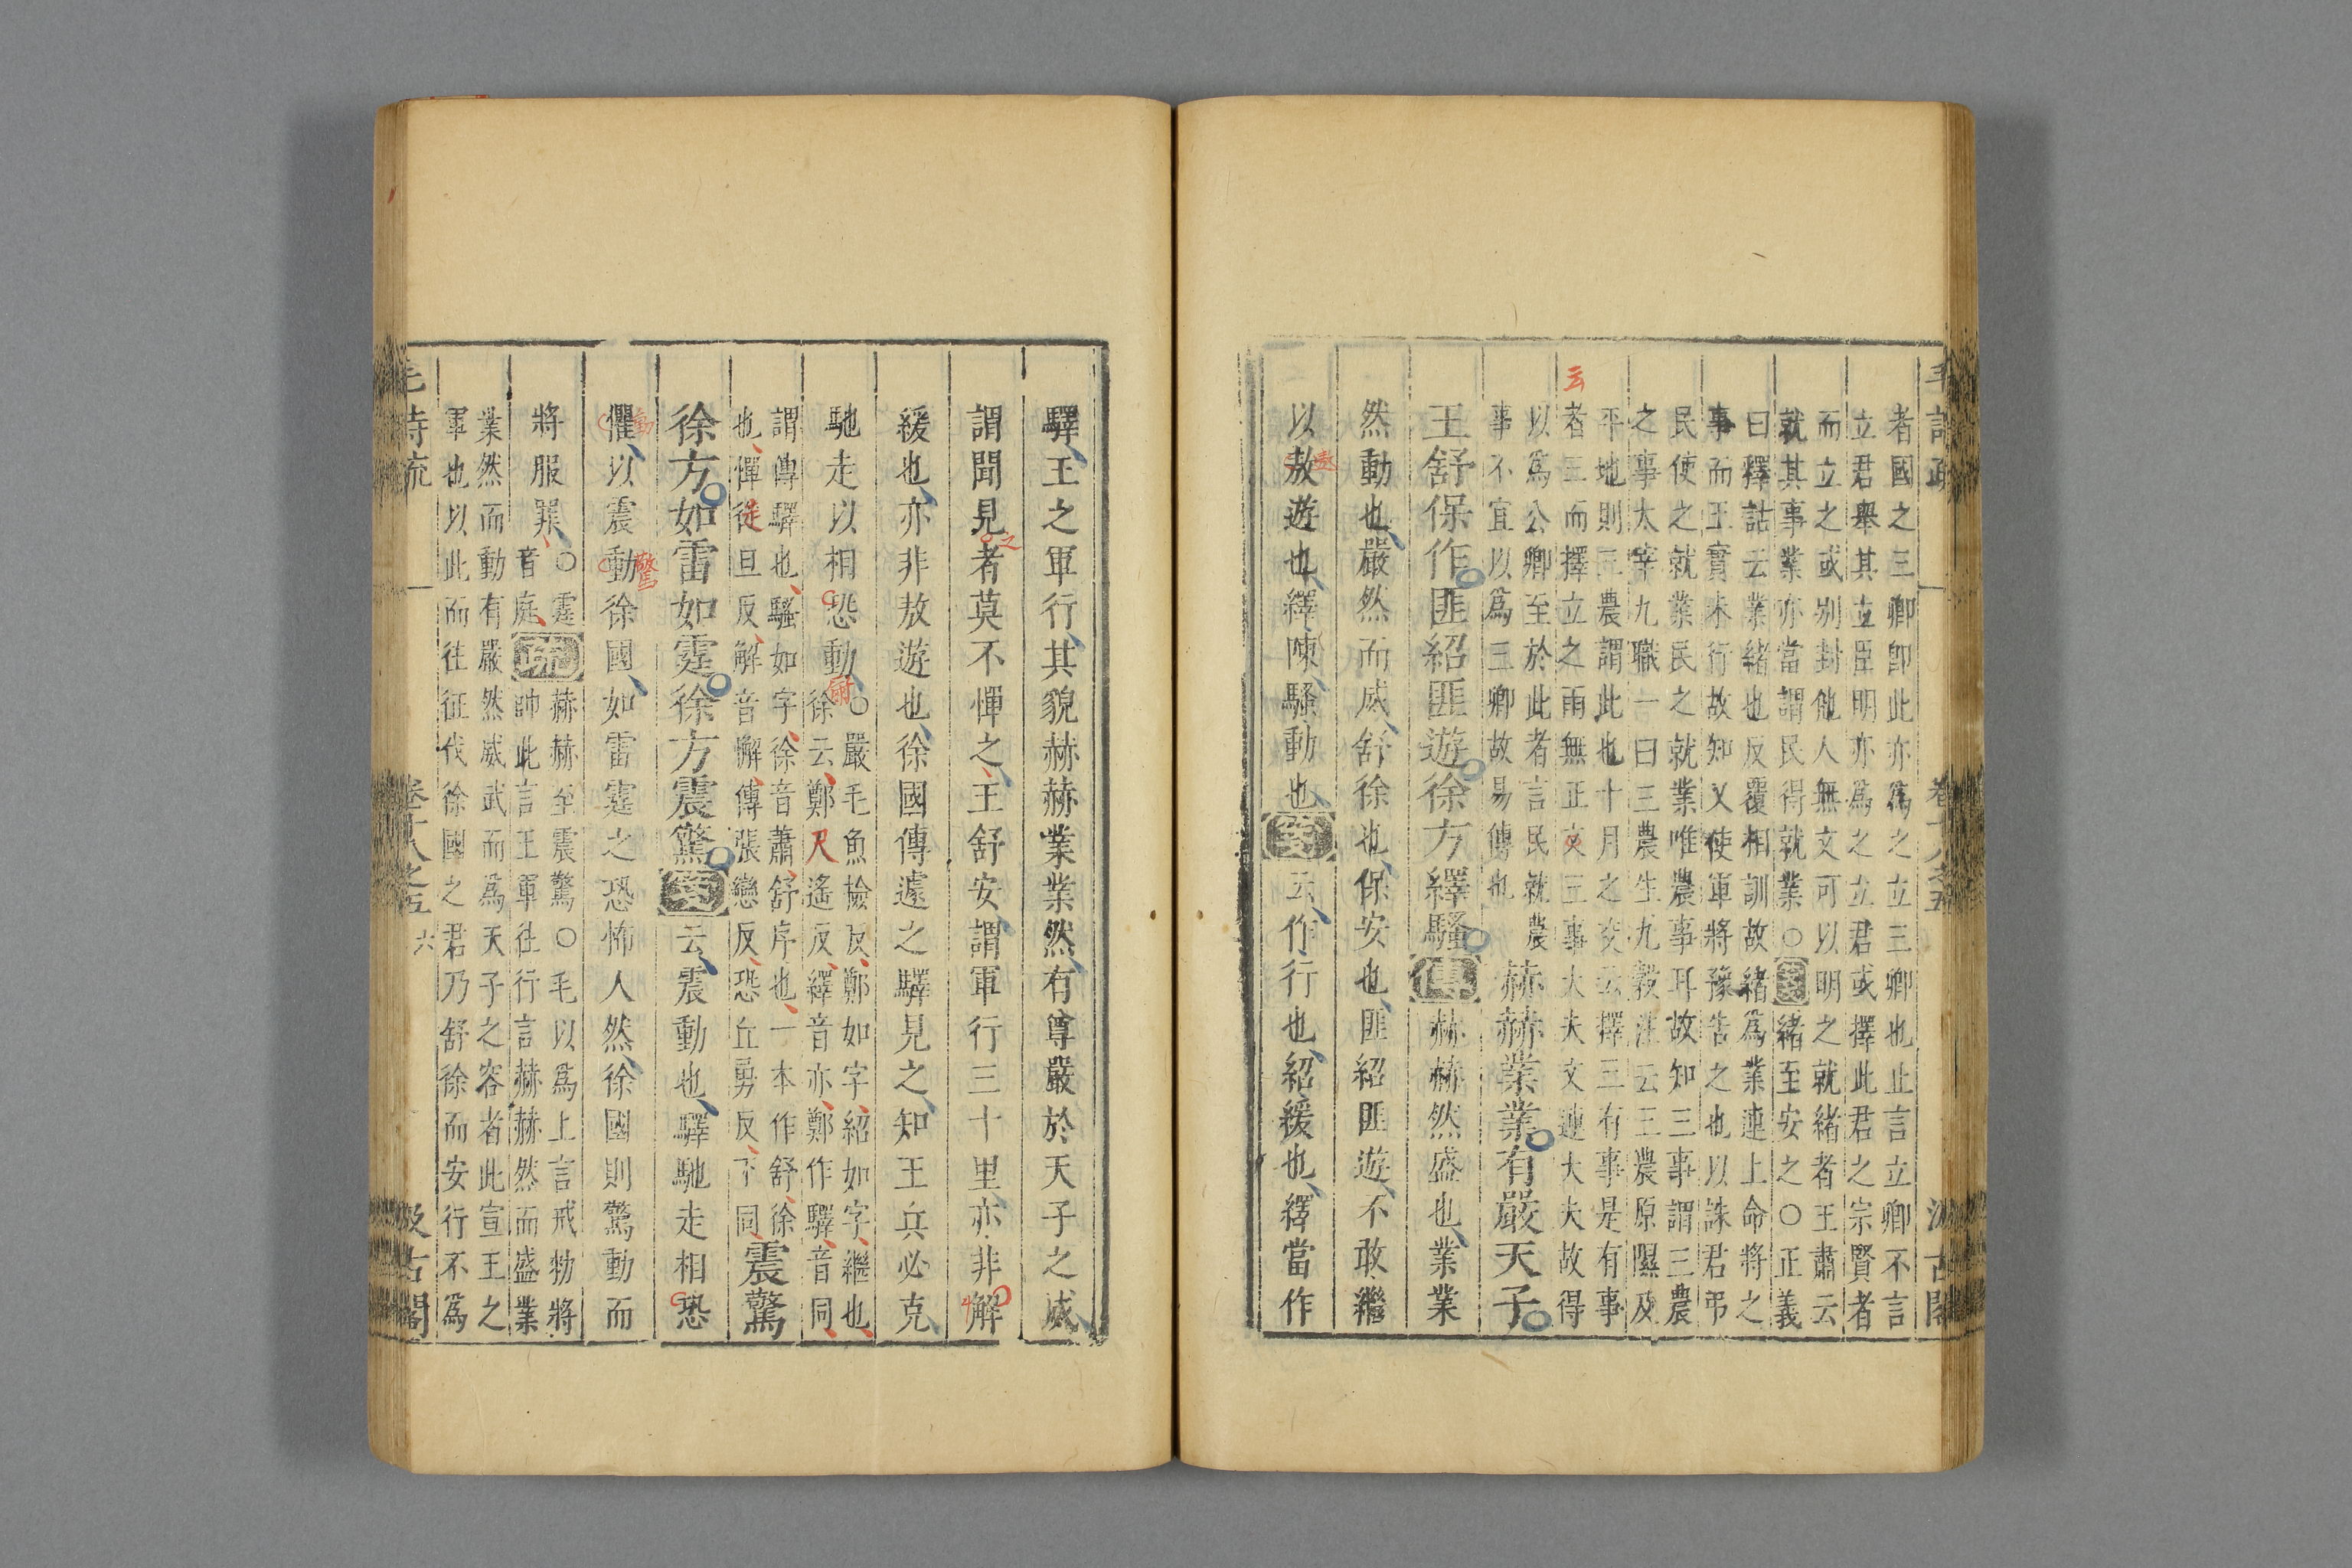 毛詩疏 卷十八之五 汲古閣
者國之三卿卽此亦爲之立三卿也止言立卿不言
立君舉其立臣明亦爲之立君或擇此君之宗賢者
而立之或别封他人無文可以明之就緒者王肅云
就其事業亦當謂民得就業○箋緒至安之○正義
曰釋詁云業緒也反覆相訓故緒爲業連上命將之
事而王實未行故知又使軍將豫告之也以誅君弔
民使之就業民之就業唯農事耳故知三事謂三農
之事大宰九職一曰三農生九穀注云三農原隰及
平地則三農謂此也十月之交云擇三有事是有事
云
者三而擇立之雨無正文三事大夫文連大夫故得
以爲公卿至於此者言民就農
事不宜以爲三卿故易傳也
赫赫業業有嚴天子
王舒保作匪紹匪遊徐方繹騷傳赫赫然盛也業業
然動也嚴然而威舒徐也保安也匪紹匪遊不敢繼
以敖遊也繹陳騷動也箋云作行也紹緩也繹當作
驛王之軍行其貌赫赫業業然有尊嚴於天子之威
謂聞見者莫不憚之王舒安謂軍行三十里亦非解
之
緩也亦非敖遊也徐國傳遽之驛見之知王兵必克
馳走以相恐動○嚴毛魚檢反鄭如字紹如字繼也
徐云鄭尺遙反繹音亦鄭作驛音同
謂傳驛也騷如字徐音蕭舒序也一本作舒徐
也憚徒旦反解音懈傳張戀反恐丘勇反下同
震驚
徐方如雷如霆徐方震驚箋云震動也驛馳走相恐
懼以震動徐國如雷霆之恐怖人然徐國則驚動而
動
驚
將服罪○霆
音庭疏赫赫至震驚○毛以爲上言戒勑將
帥此言王軍往行言赫赫然而盛業
業然而動有嚴然威武而爲天子之容者此宣王之
軍也以此而往征伐徐國之君乃舒徐而安行不爲
毛詩疏 卷十八之五 六 汲古閣